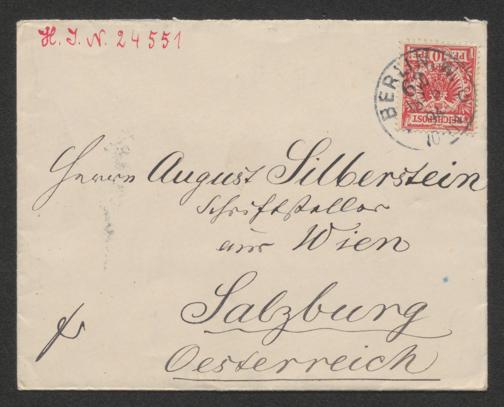 H. I. N. 24551
BERLIN W
REICHSPOST
10 PF
Herrn August Silberstein
Schriftsteller
aus Wien
Salzburg
Oesterreich